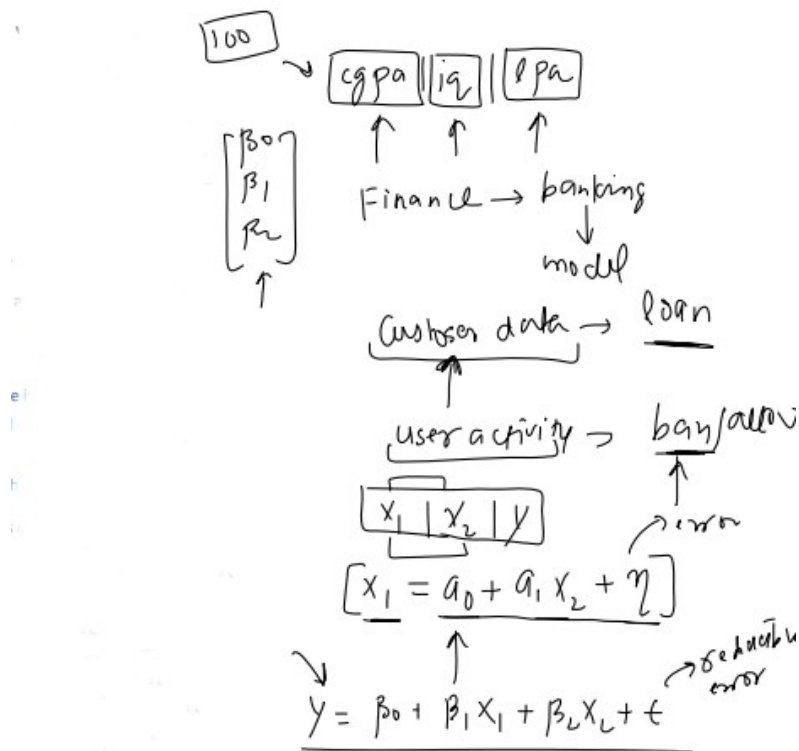 100
cgpa | iq | lpa
β0
β1
β2
Finance → banking
model
Custoser data → loan
user activity → ban/allow
x1 | x2 | y
→ error
[x1 = a0 + a1 x2 + η]
y = β0 + β1 x1 + β2 x2 + ϵ
error